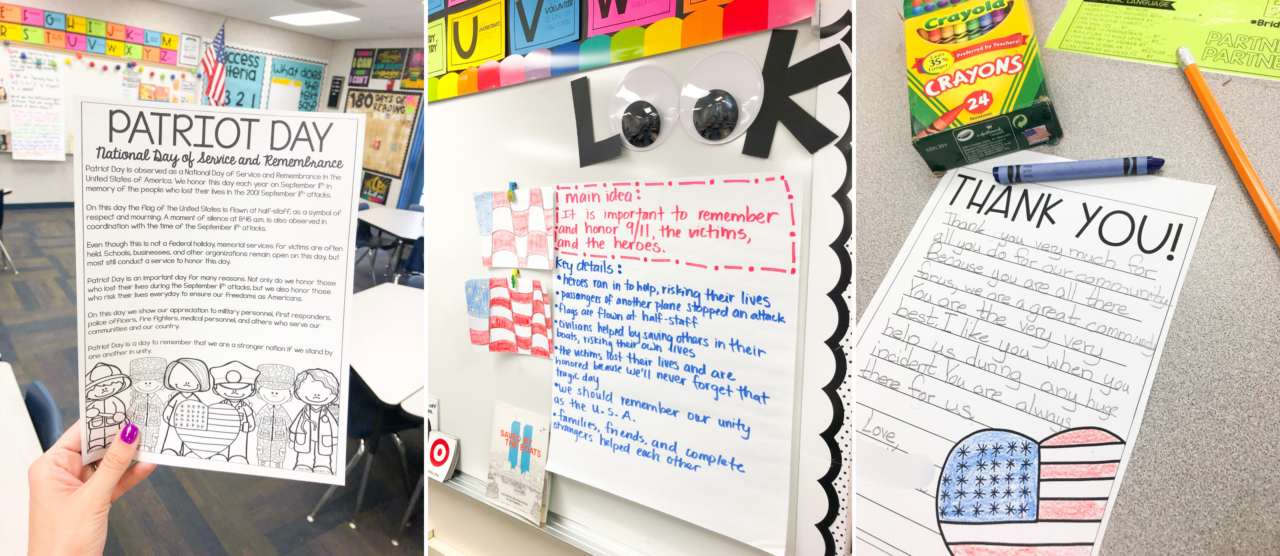 E F G H I J K L M
R S T U V W X Y Z
success
criteria
3 2 1
what does
I CAN'T
180 DAYS OF
READING
PATRIOT DAY
National Day of Service and Remembrance
Patriot Day is observed as a National Day of Service and Remembrance in the
United States of America. We honor this day each year on September 11th in
memory of the people who lost their lives in the 2001 September 11th attacks.
On this day the Flag of the United States is flown at half-staff, as a symbol of
respect and mourning. A moment of silence at 8:46 a.m. is also observed in
coordination with the time of the September 11th attacks.
Even though this is not a federal holiday, memorial services for victims are often
held. Schools, businesses, and other organizations remain open on this day, but
most still conduct a service to honor this day.
Patriot Day is an important day for many reasons. Not only do we honor those
who lost their lives during the September 11th attacks, but we also honor those
who risk their lives everyday to ensure our freedoms as Americans.
On this day we show our appreciation to military personnel, first responders,
police officers, fire fighters, medical personnel, and others who serve our
communities and our country.
Patriot Day is a day to remember that we are a stronger nation if we stand by
one another in unity.
U V W
VOLUNTEER
LOOK
main idea:
It is important to remember
and honor 9/11, the victims,
and the heroes.
Key details:
• heroes ran in to help, risking their lives
• passengers of another plane stopped an attack
• flags are flown at half-staff
• civilians helped by saving others in their
boats, risking their own lives
• the victims lost their lives and are
honored because we'll never forget that
tragic day
• we should remember our unity
as the U.S.A.
• families, friends, and complete
strangers helped each other
SAVED BY
THE BOATS
Crayola
Preferred by Teachers!
35%
CRAYONS
24
LANGUAGE
PARTNE
PARTNE
THANK YOU!
Thank you very much for
all you do for our community
Because you are all here
for us we are a great community
You are the very very
best. I like you when you
help us during any huge
incident You are always
there for us
Love,